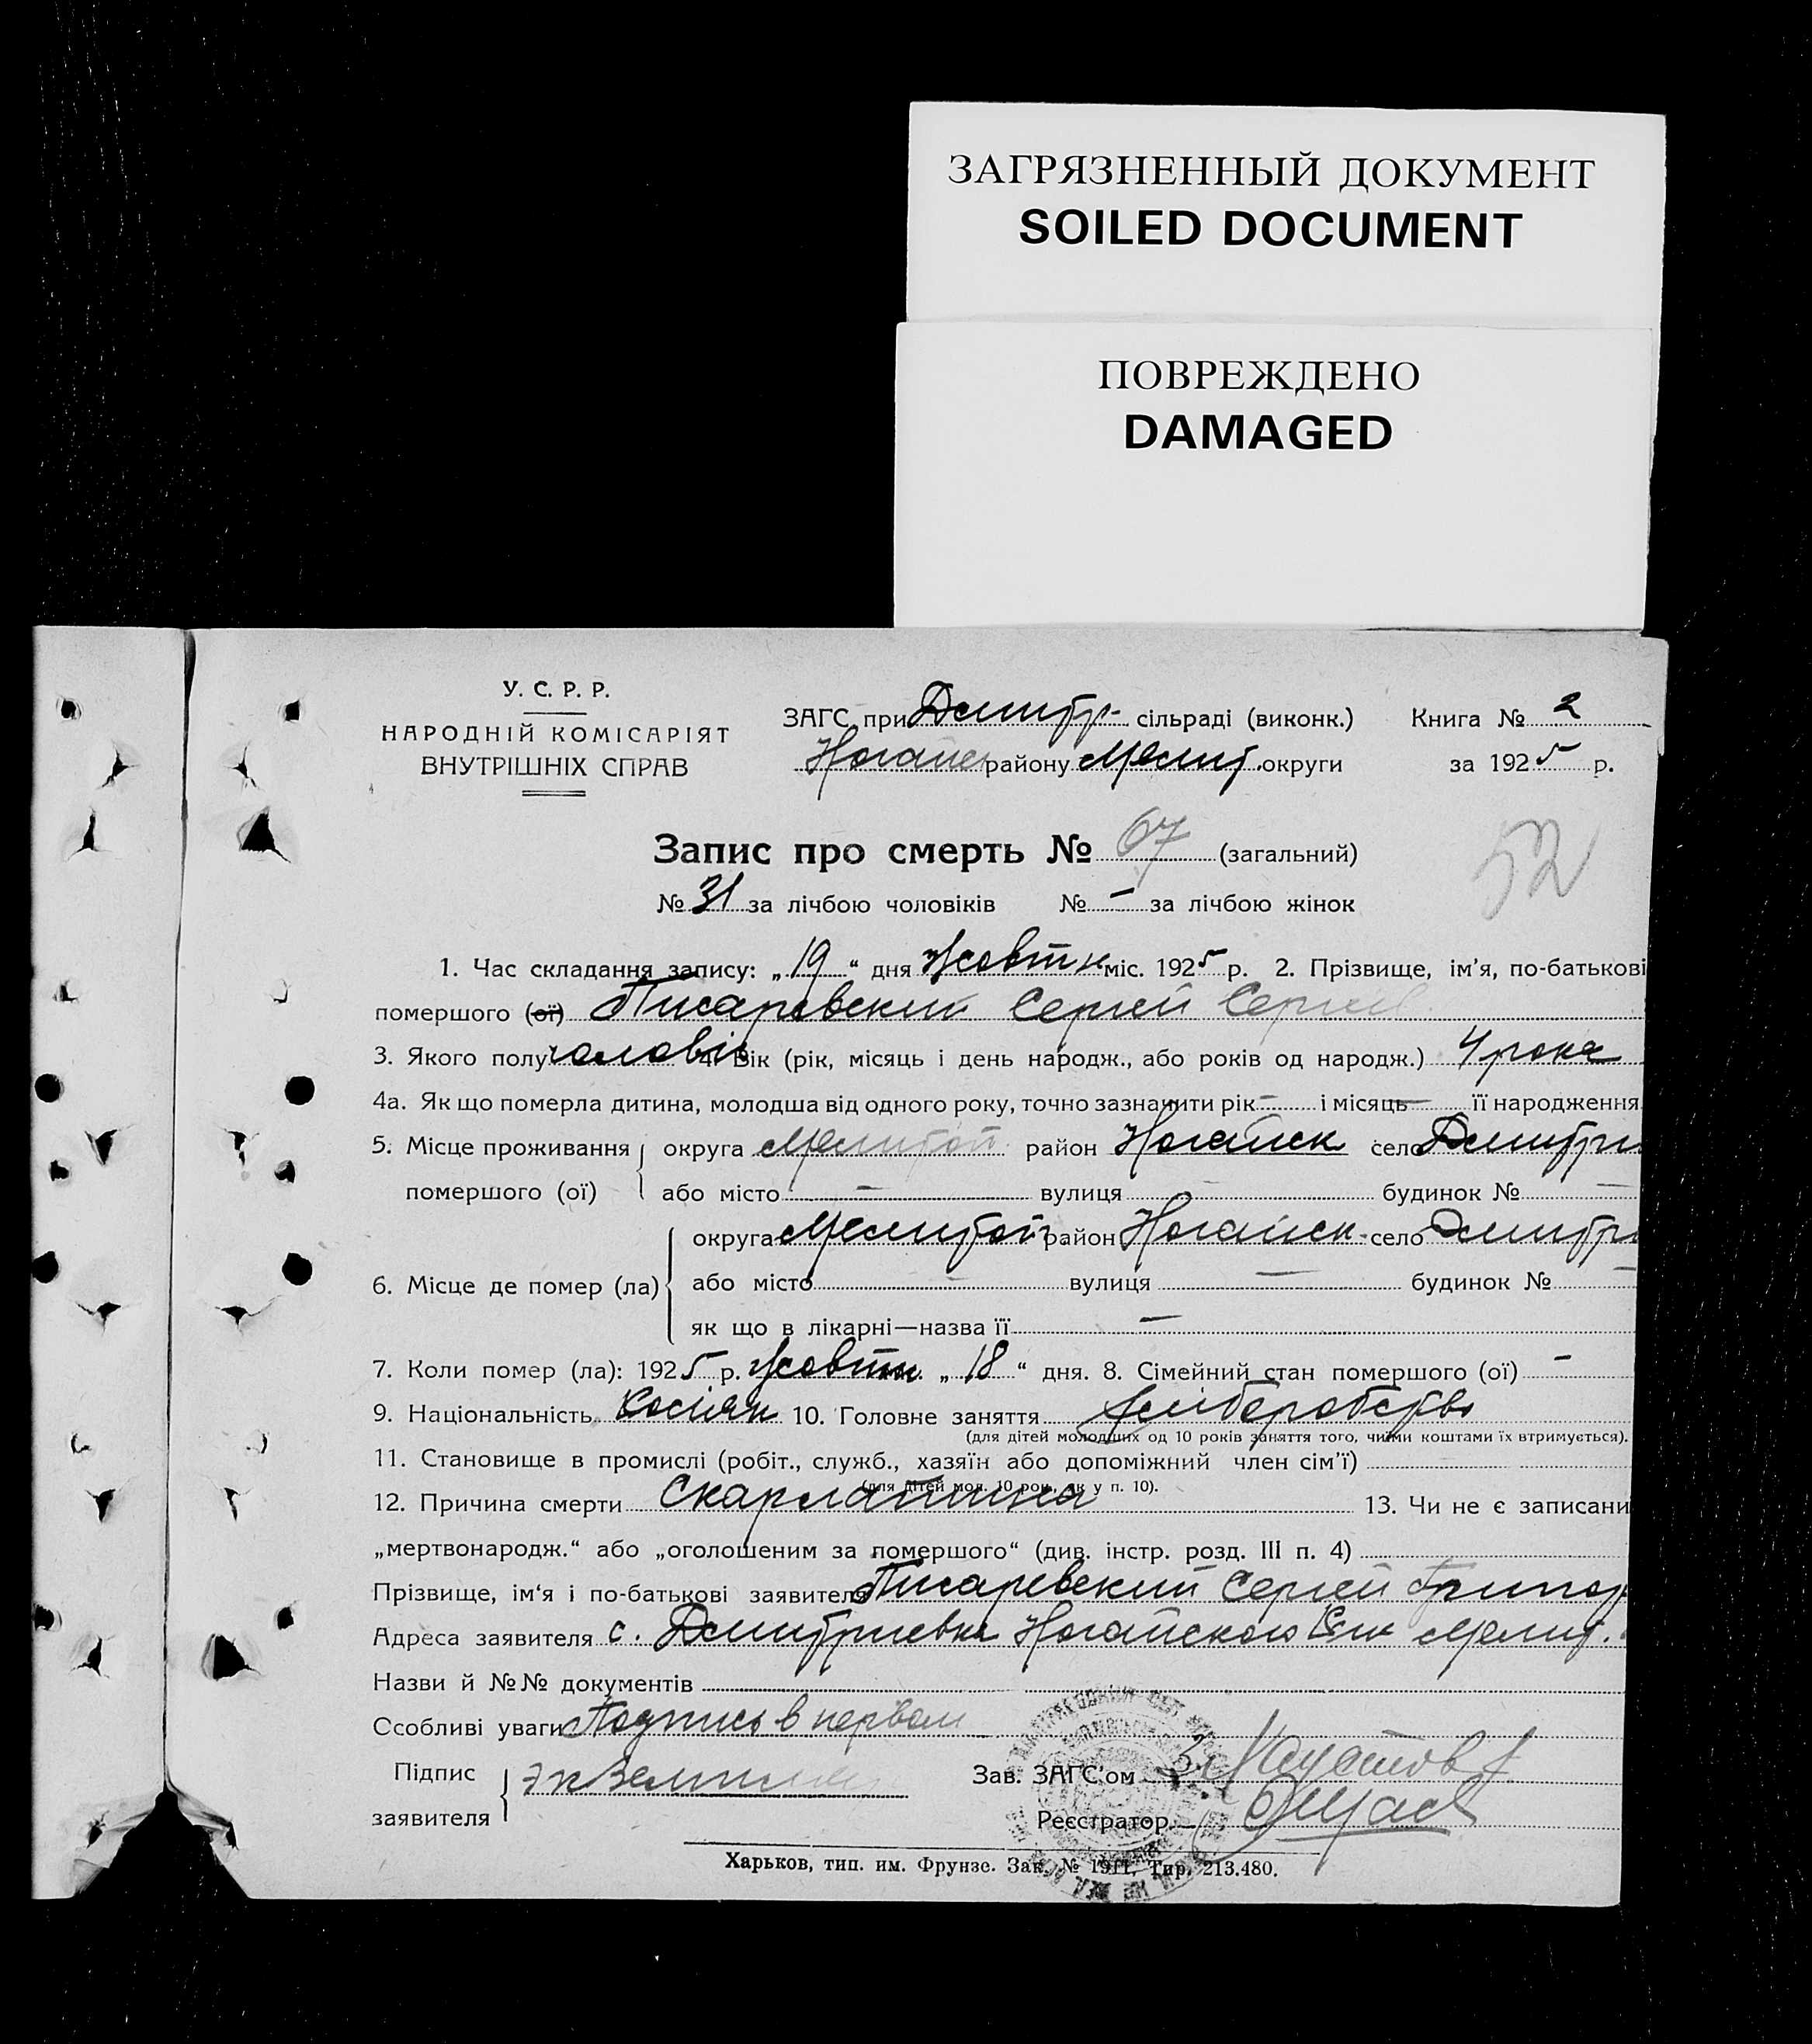 ЗАГРЯЗНЕННЫЙ ДОКУМЕНТ
SOILED DOCUMENT
ПОВРЕЖДЕНО
DAMAGED
У. С. Р. Р.
НАРОДНІЙ КОМІСАРІЯТ
ВНУТРІШНІХ СПРАВ
ЗАГС при Дмитр. сільраді (виконк.) Книга № 2
Ногайс району Мелит. округи за 1925 р.
Запис про смерть № 67 (загальний)
52
№ 31 за лічбою чоловіків № – за лічбою жінок
1. Час складання запису: „19“ дня жовтн міс. 1925 р. 2. Прізвище, ім'я, по-батькові
помершого (ої) Писаревский Сергей Сергеев
3. Якого полу чоловік 4. Вік (рік, місяць і день народж., або років од народж.) 4 рока
4а. Як що померла дитина, молодша від одного року, точно зазначити рік – і місяць – її народження
5. Місце проживання округа Мелитоп район Ногайск село Дмитри
помершого (ої) або місто – вулиця – будинок № –
округа Мелитоп район Ногайск село Дмитри
6. Місце де помер (ла) або місто – вулиця – будинок № –
як що в лікарні—назва її –
7. Коли помер (ла): 1925 р. жовтн. „18“ дня. 8. Сімейний стан помершого (ої) –
9. Національність 10. Головне заняття
(для дітей молодших од 10 років заняття того, чиїми коштами їх втримується).
11. Становище в промислі (робіт., служб., хазяїн або допоміжний член сім'ї)
(для дітей мол. 10 рок., як у п. 10).
12. Причина смерти Скарлатина 13. Чи не є записани
„мертвонародж.“ або „оголошеним за помершого“ (див. інстр. розд. III п. 4)
Прізвище, ім'я і по-батькові заявителя Писаревский Сергей Григор
Адреса заявителя с. Дмитриевка Ногайского Мелит.
Назви й №№ документів
Ссобливі уваги Подпись в первом
Підпис заявителя экземпляре
Зав. ЗАГС'ом
Реєстратор
Харьков, тип. им. Фрунзе. Зак. № 1911. Тир. 213.480.